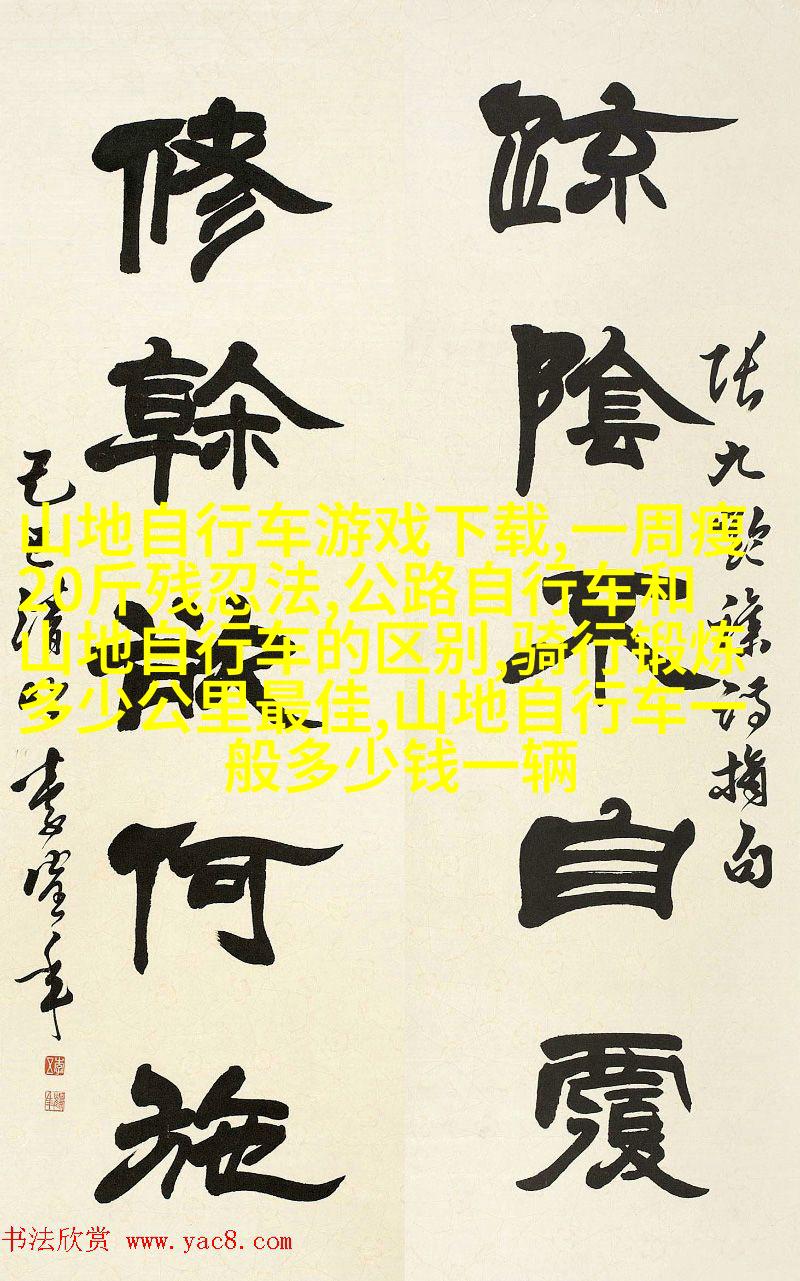 疏陰不自覆
張九齡雜詩摘句
修幹何施
己巳清
山地自行车游戏下载,一周瘦
20斤残忍法,公路自行车和
山地自行车的区别,骑行锻炼
多少公里最佳,山地自行车一
般多少钱一辆
书法欣赏 www.yac8.com